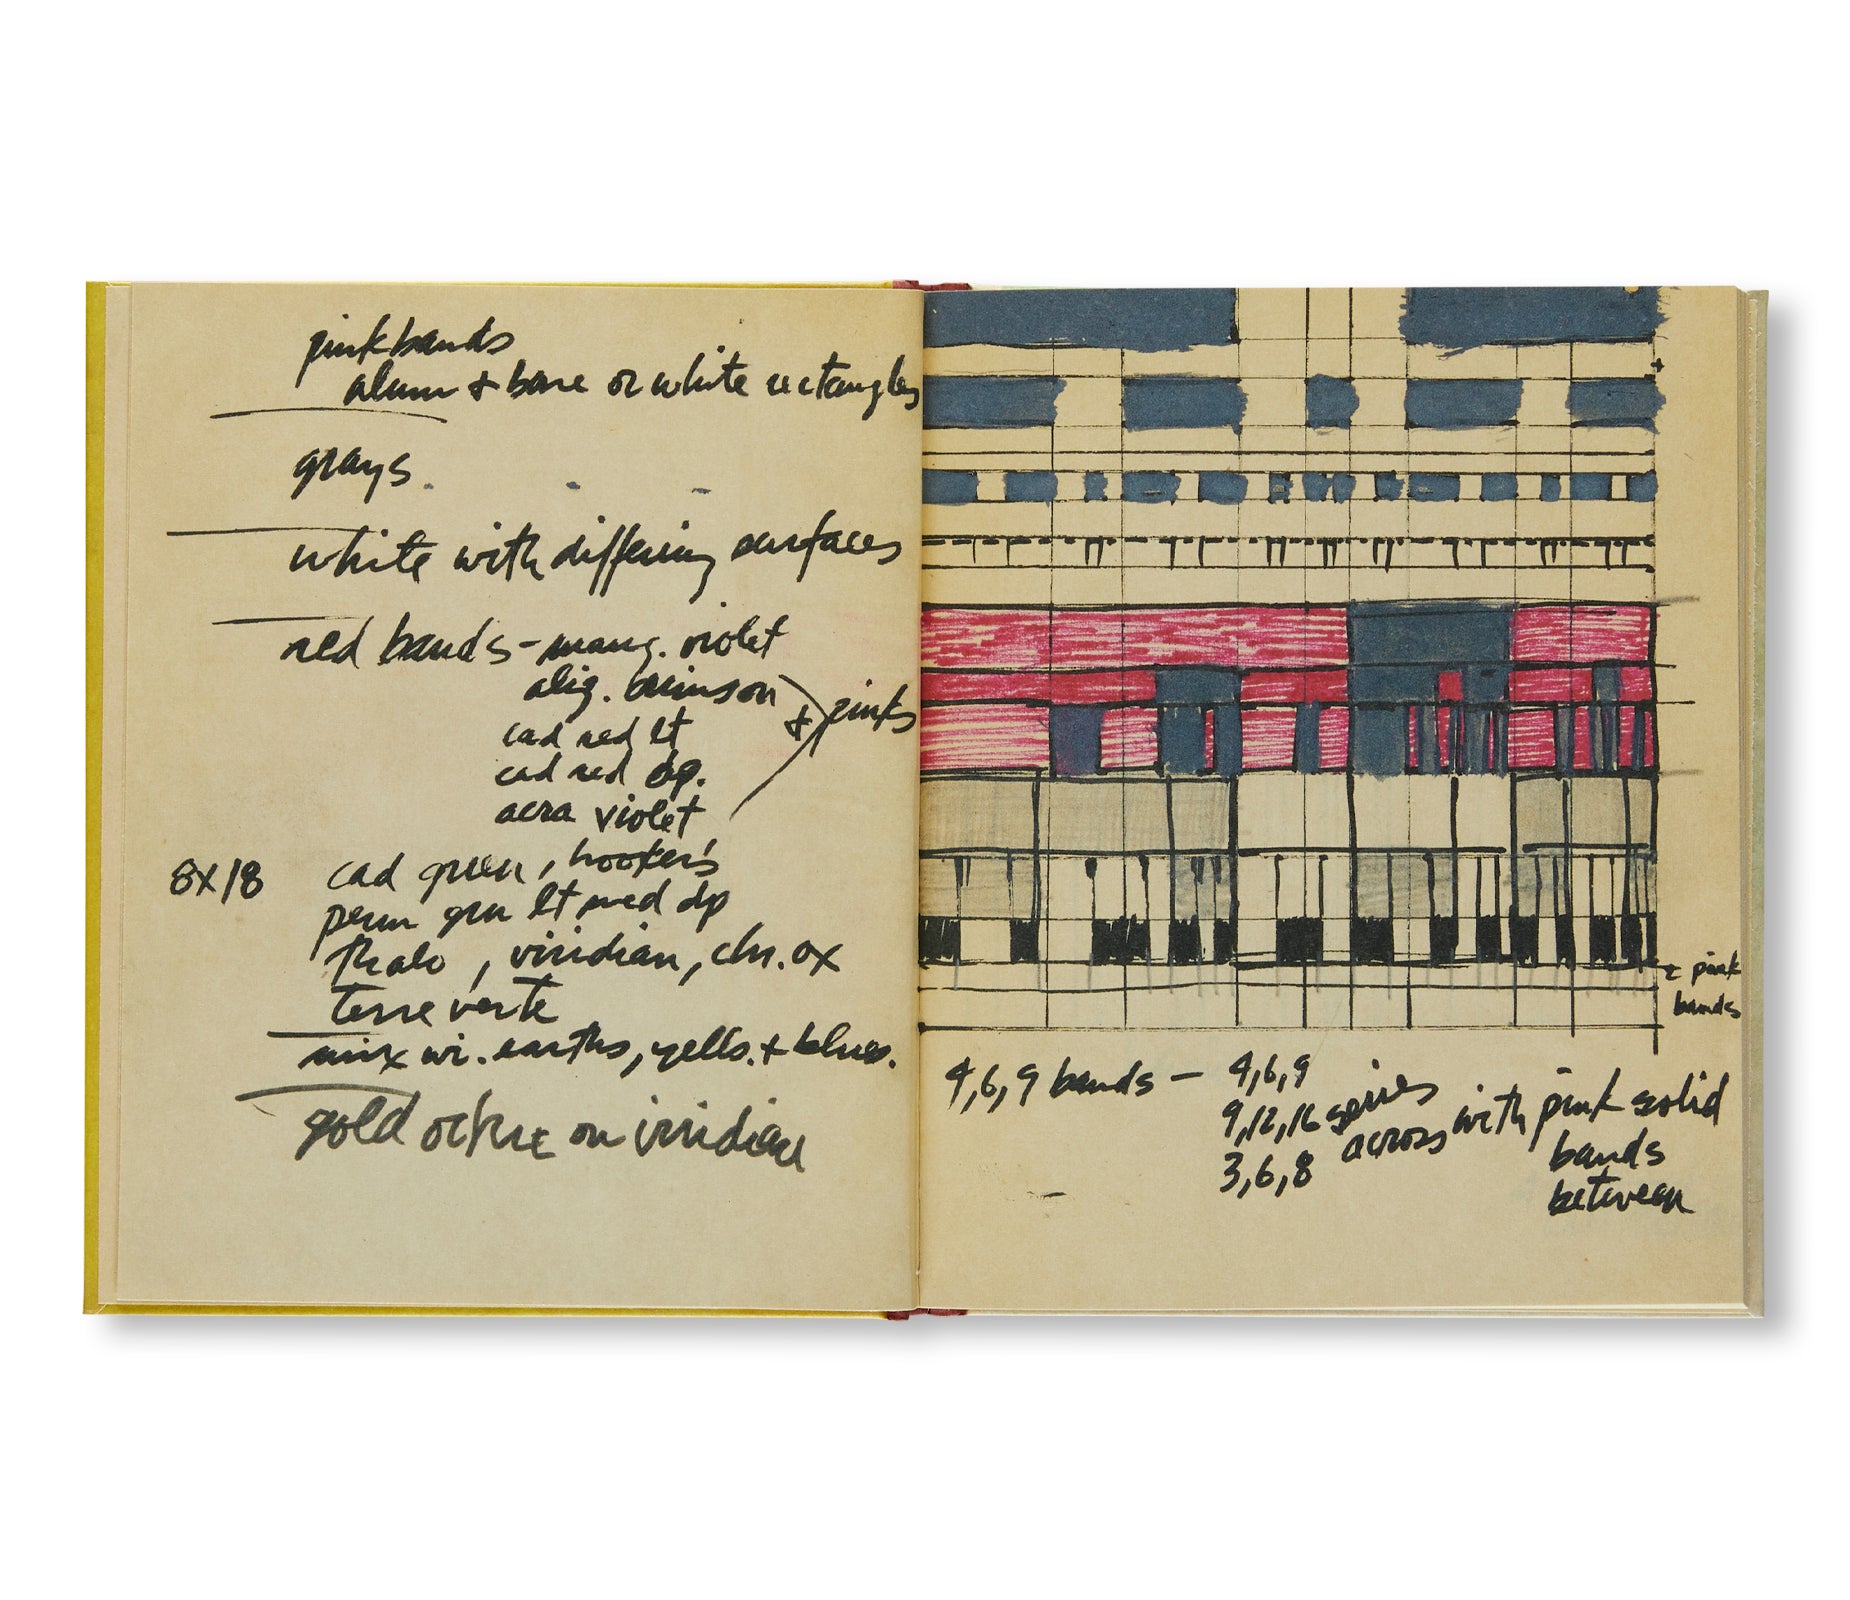 pink bands
alum + bone or white rectangles
grays.
white with differing surfaces
red bands - mang. violet
aliz. crimson
cad red lt
cad red dp.
acra violet
+ pinks
8x18
cad green, hooker's
perm grn lt med dp
thalo, viridian, chr. ox
terre verte
mix wi. earths, yells. + blues.
gold ochre on viridian
pink
bands
4,6,9 bands — 4,6,9
9,12,16 series
across
3,6,8
with pink solid
bands
between